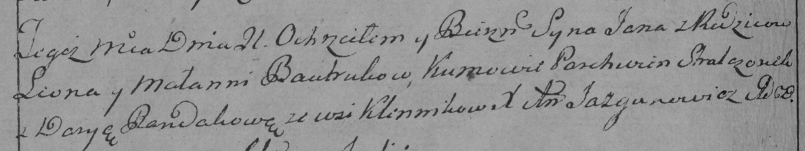 Tegoż Mca Dnia 21. Ochrzciłem y Bierzm Syna Jana z Rodzicow
Leona y Matanni Bautrukow, Kumowie Parchwien Stralczonek
z Daryą Randakową ze wsi Klinnikow X An Jazgunowicz